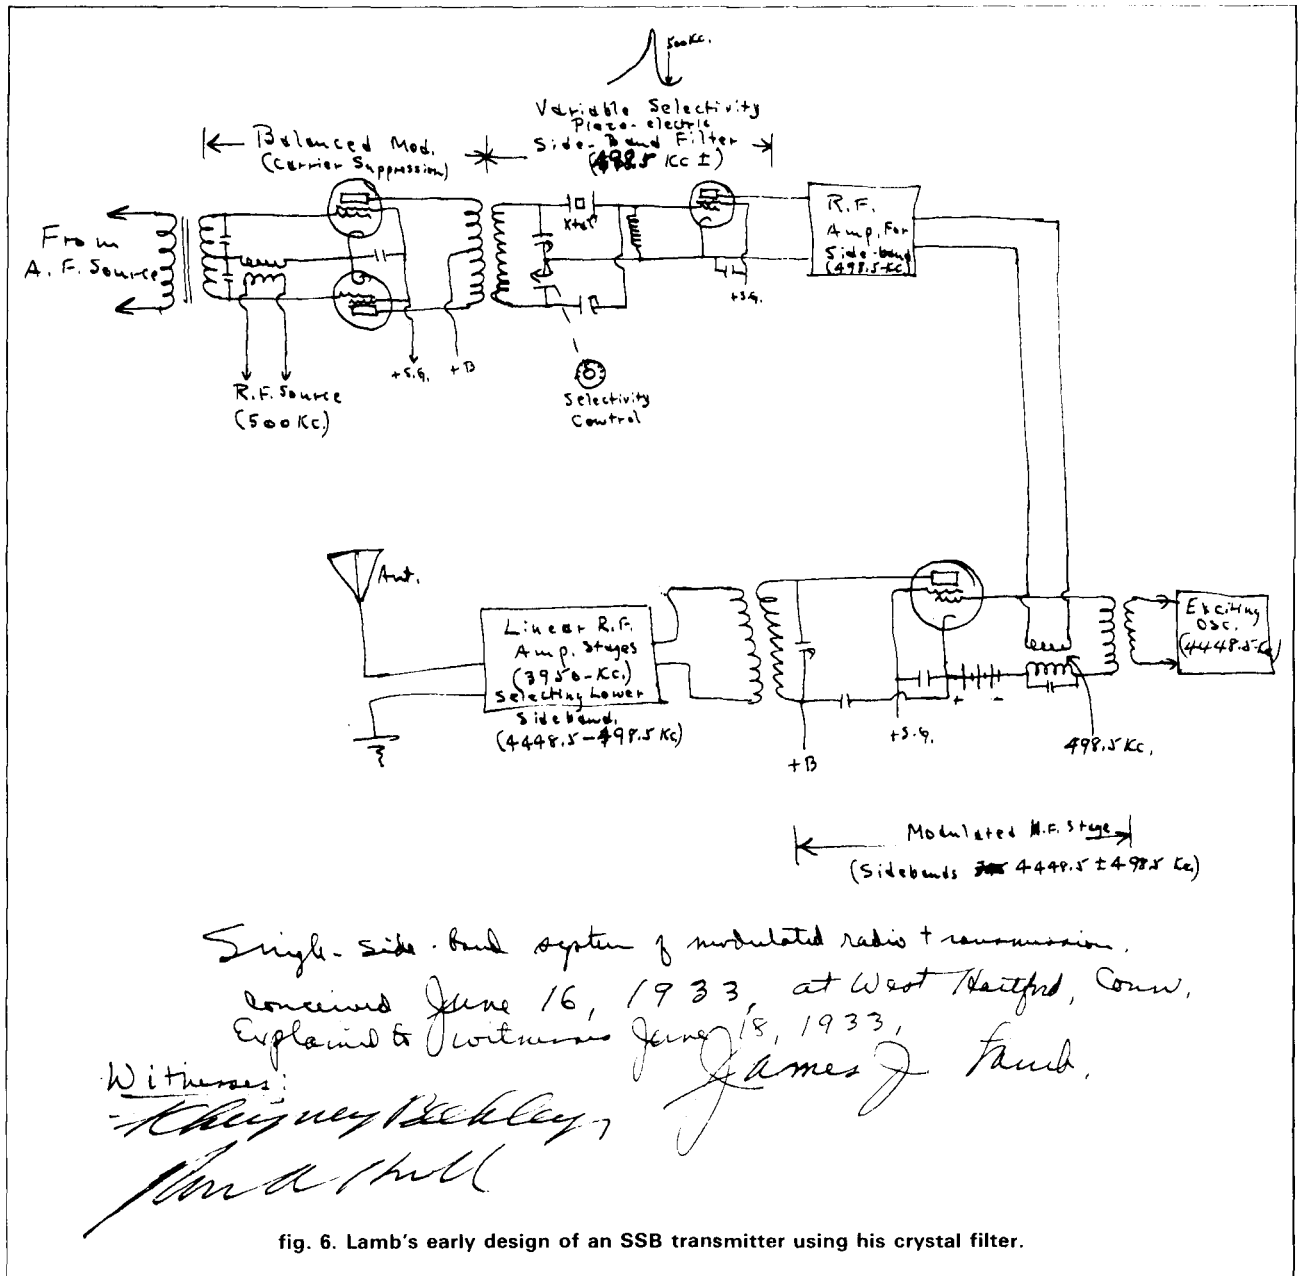 500 Kc.
Variable Selectivity
Piezo-electric
Side-Band Filter
(498.5 Kc ±)
Balanced Mod.
(Carrier Suppression)
From
A.F. Source
Xtal
R.F.
Amp. For
Side-band
(498.5-Kc)
+S.G.
+S.G.
+B
R.F. Source
(500 Kc.)
Selectivity
Control
Ant.
Linear R.F.
Amp. Stages
(3950-Kc.)
Selecting Lower
Sideband.
(4448.5-498.5 Kc)
Exciting
Osc.
(4448.5-Kc)
+ -
+S.G.
498.5 Kc.
+B
Modulated Stage
(Sidebands 4448.5 ± 498.5 Kc)
Single-side-band system of modulated radio transmission,
conceived June 16, 1933, at West Hartford, Conn.
Explained to witnesses June 18, 1933,
James J Lamb.
Witnesses:
fig. 6. Lamb's early design of an SSB transmitter using his crystal filter.